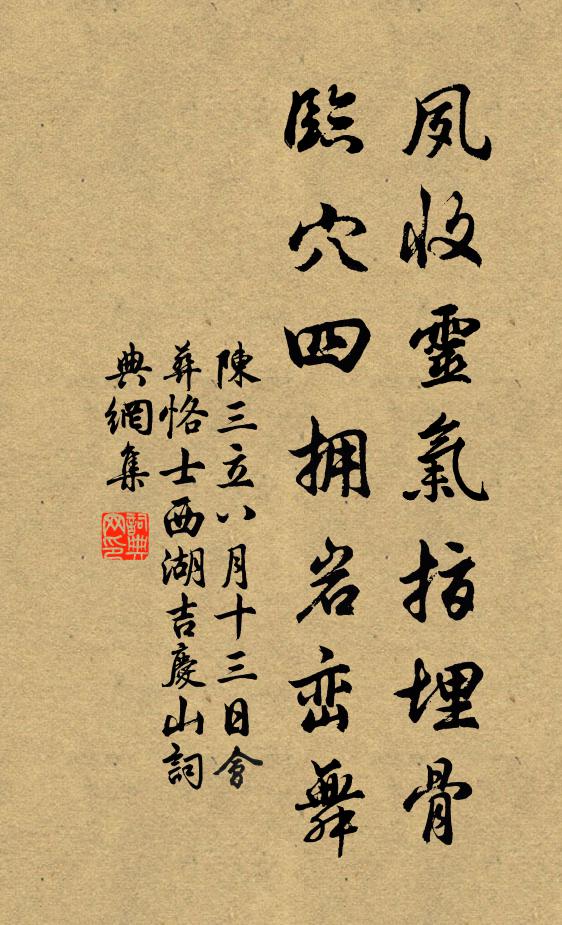 夙收靈氣指埋骨
臨穴四拥岩峦舞
陳三立八月十三日會
葬恪士西湖吉慶山詞
典網集
詞典
网印